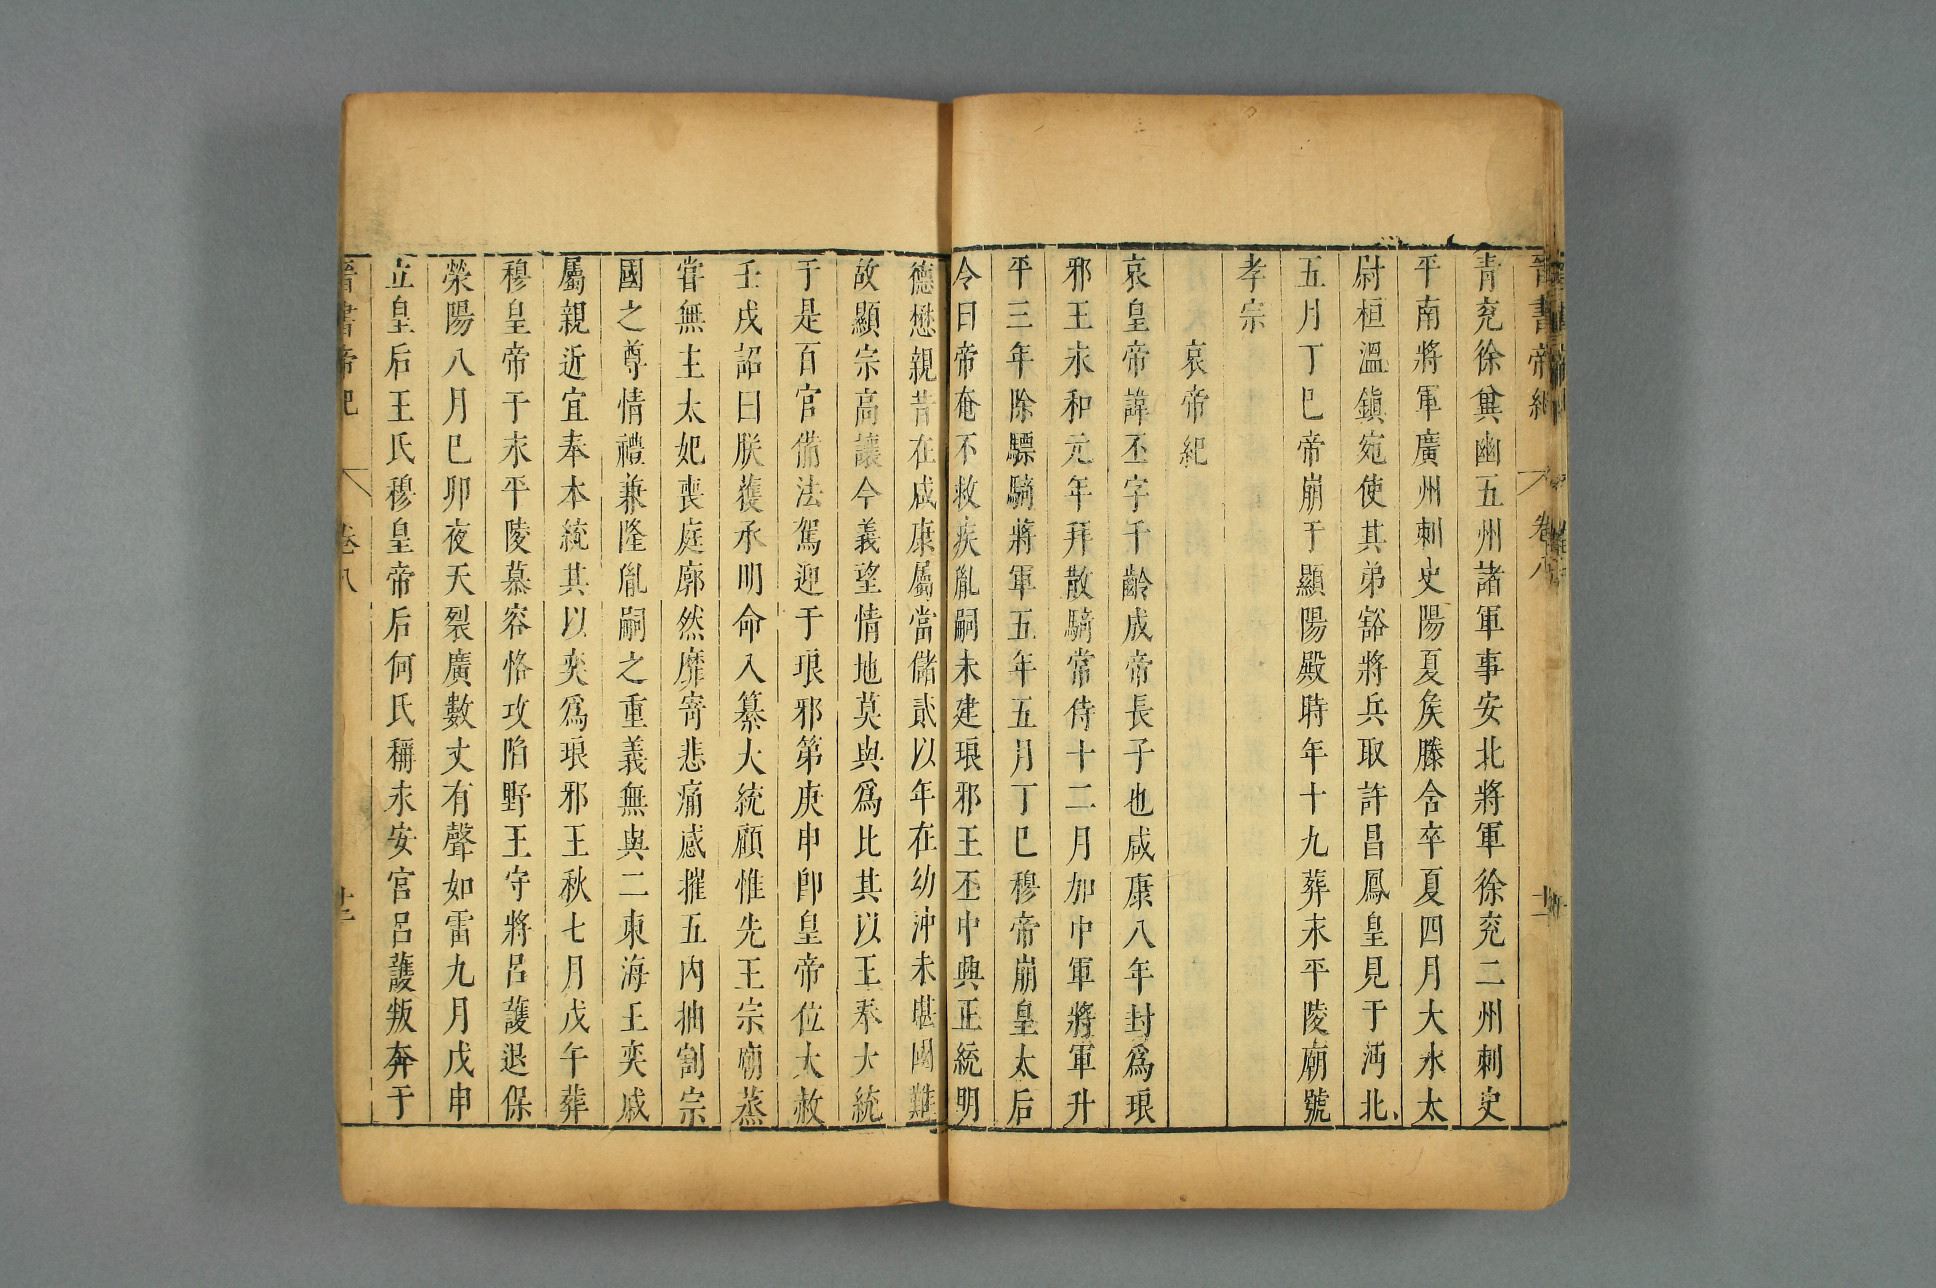 晉書帝紀 卷八 十一
青兗徐兾幽五州諸軍事安北將軍徐兗二州刺史
平南將軍廣州刺史陽夏矦滕含卒夏四月大水太
尉桓溫鎭宛使其弟豁將兵取許昌鳳皇見于沔北
五月丁巳帝崩于顯陽殿時年十九葬永平陵廟號
孝宗
哀帝紀
哀皇帝諱丕字千齡成帝長子也咸康八年封爲琅
邪王永和元年拜散騎常侍十二月加中軍將軍升
平三年除驃騎將軍五年五月丁巳穆帝崩皇太后
令曰帝奄不救疾胤嗣未建琅邪王丕中興正統明
德懋親昔在咸康屬當儲貳以年在幼沖未堪國難
故顯宗高讓今義望情地莫與爲比其以王奉大統
于是百官備法駕迎于琅邪第庚申卽皇帝位大赦
壬戌詔曰朕獲承明命入纂大統顧惟先王宗廟蒸
甞無主太妃喪庭廓然靡寄悲痛感摧五內抽割宗
國之尊情禮兼隆胤嗣之重義無與二東海王奕戚
屬親近宜奉本統其以奕爲琅邪王秋七月戊午葬
穆皇帝于永平陵慕容恪攻陷野王守將呂護退保
滎陽八月巳卯夜天裂廣數丈有聲如雷九月戊申
立皇后王氏穆皇帝后何氏稱永安宮呂護叛奔于
晉書帝紀 卷八 十二